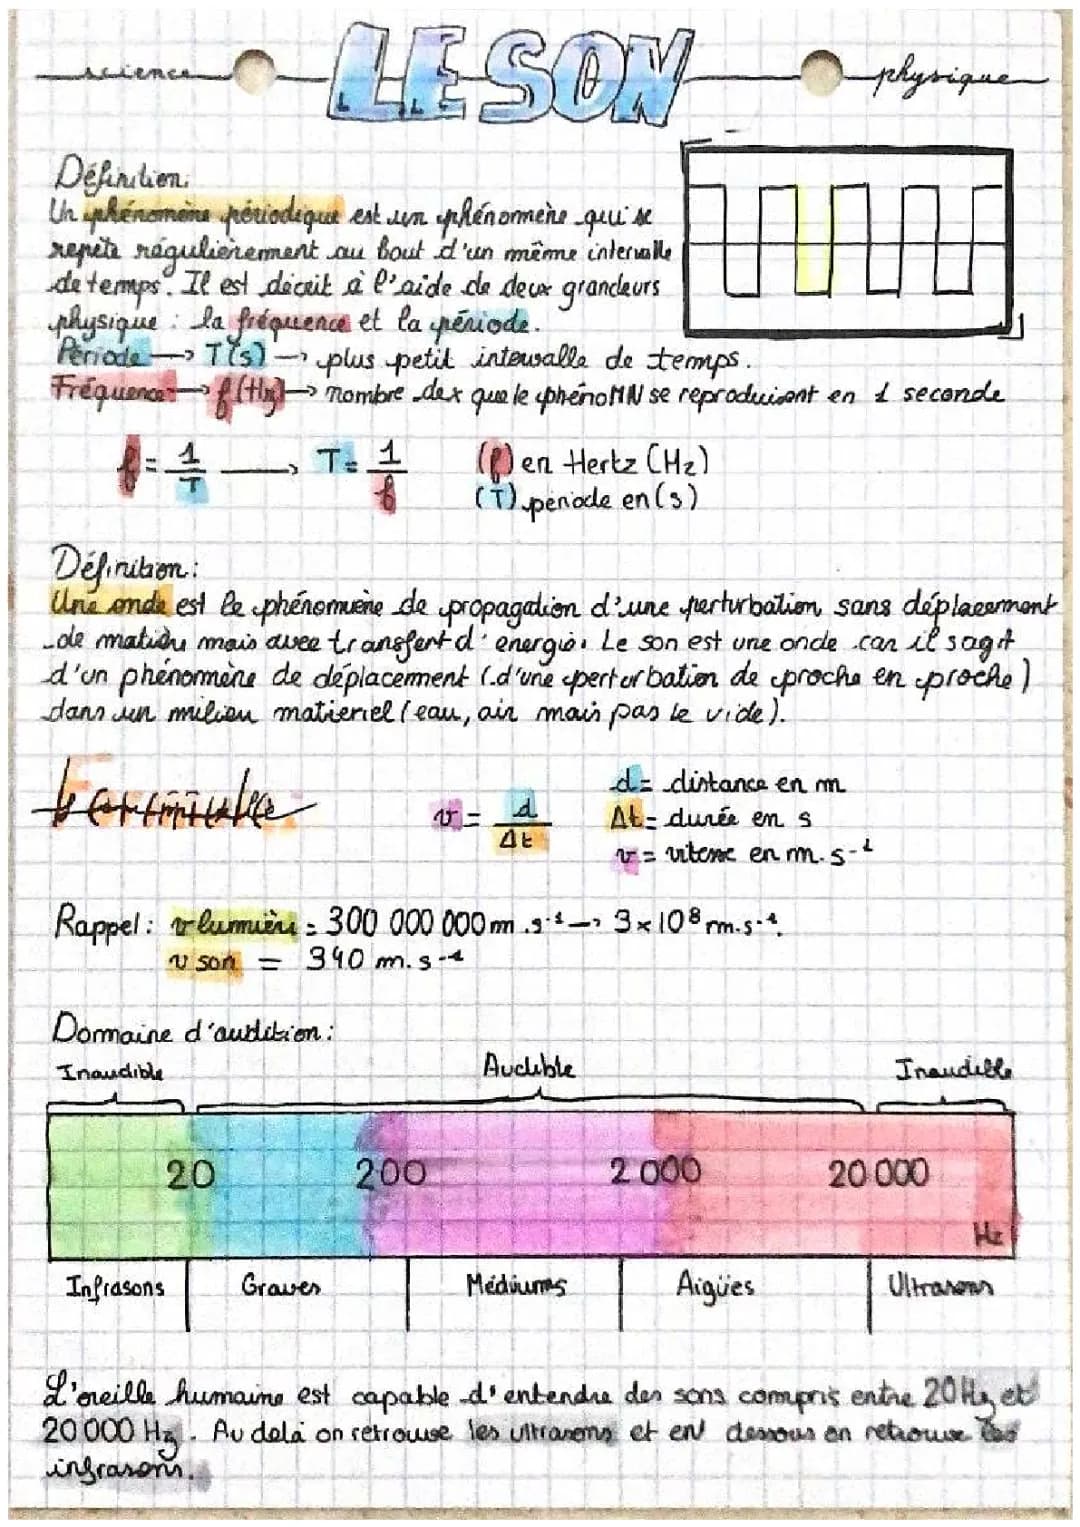 science LE SON physique
Définition:
Un phénomène périodique est un phénomène qui se
repète régulièrement au bout d'un même intervalle
de temps. Il est décrit à l'aide de deux grandeurs
physique : la fréquence et la période.
Période → T(s) → plus petit intervalle de temps.
Fréquence → f(Hz) → nombre de x que le phénoMN se reproduisent en 1 seconde
f = 1/T → T = 1/f (f) en Hertz (Hz)
(T) période en (s)
Définition :
Une onde est le phénomène de propagation d'une perturbation sans déplacement
de matière mais avec transfert d'énergie. Le son est une onde car il sagit
d'un phénomène de déplacement (d'une perturbation de proche en proche)
dans un milieu matieriel (eau, air mais pas le vide).
Formule :
d = distance en m
v = d/Δt Δt = durée en s
v = vitesse en m.s-1
Rappel : v lumière = 300 000 000 m.s-1 → 3×10⁸ m.s-1.
v son = 340 m.s-1
Domaine d'audition :
Inaudible Audible Inaudible
20 200 2 000 20 000
Hz
Infrasons Graves Médiums Aigües Ultrasons
L'oreille humaine est capable d'entendre des sons compris entre 20 Hz et
20 000 Hz. Au delà on retrouve les ultrasons et en dessous on retrouve les
infrasons.